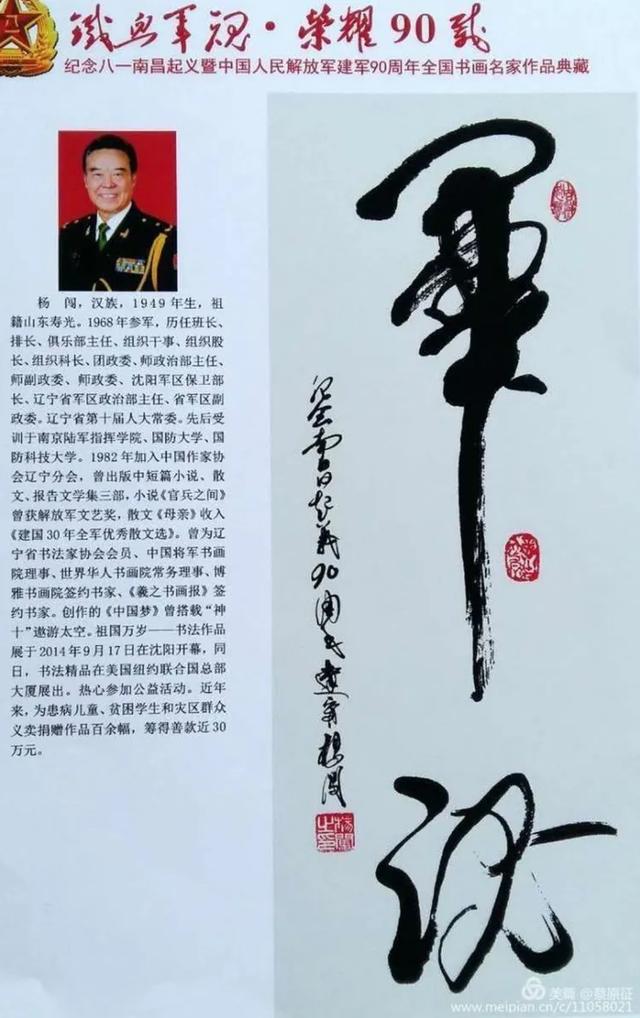 鐵血军魂·荣耀90载
纪念八一南昌起义暨中国人民解放军建军90周年全国书画名家作品典藏
杨 闯，汉族，1949年生，祖
籍山东寿光。1968年参军，历任班长、
排长、俱乐部主任、组织干事、组织股
长、组织科长、团政委、师政治部主任、
师副政委、师政委、沈阳军区保卫部
长、辽宁省军区政治部主任、省军区副
政委。辽宁省第十届人大常委。先后受
训于南京陆军指挥学院、国防大学、国
防科技大学。1982年加入中国作家协
会辽宁分会，曾出版中短篇小说、散
文、报告文学集三部，小说《官兵之间》
曾获解放军文艺奖，散文《母亲》收入
《建国30年全军优秀散文选》。曾为辽
宁省书法家协会会员、中国将军书画
院理事、世界华人书画院常务理事、博
雅书画院签约书家、《羲之书画报》签
约书家。创作的《中国梦》曾搭载“神
十”遨游太空。祖国万岁——书法作品
展于2014年9月17日在沈阳开幕，同
日，书法精品在美国纽约联合国总部
大厦展出。热心参加公益活动。近年
来，为患病儿童、贫困学生和灾区群众
义卖捐赠作品百余幅，筹得善款近30
万元。
軍魂
纪念南昌起義90周年 建军 杨闯
楊闖之印
美篇 @蔡原征
www.meipian.cn/c/11058021